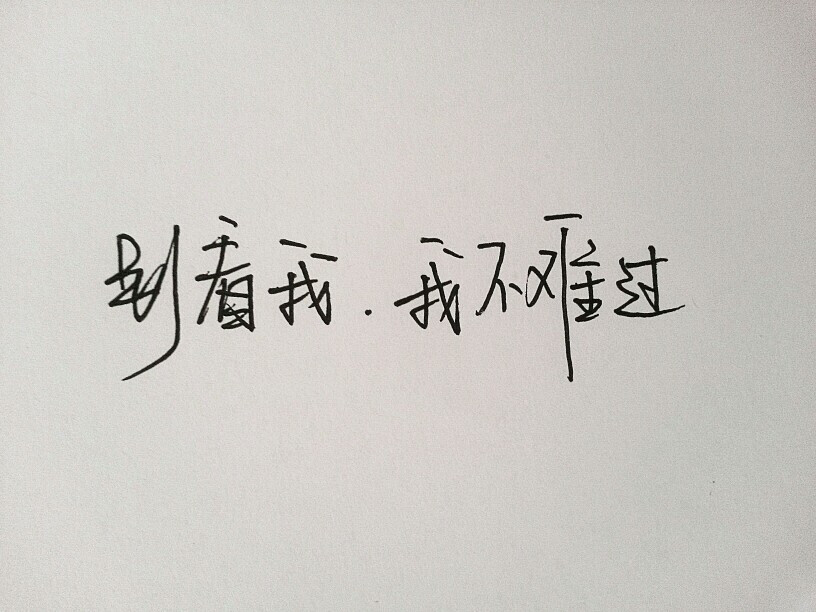 别看我.我不难过